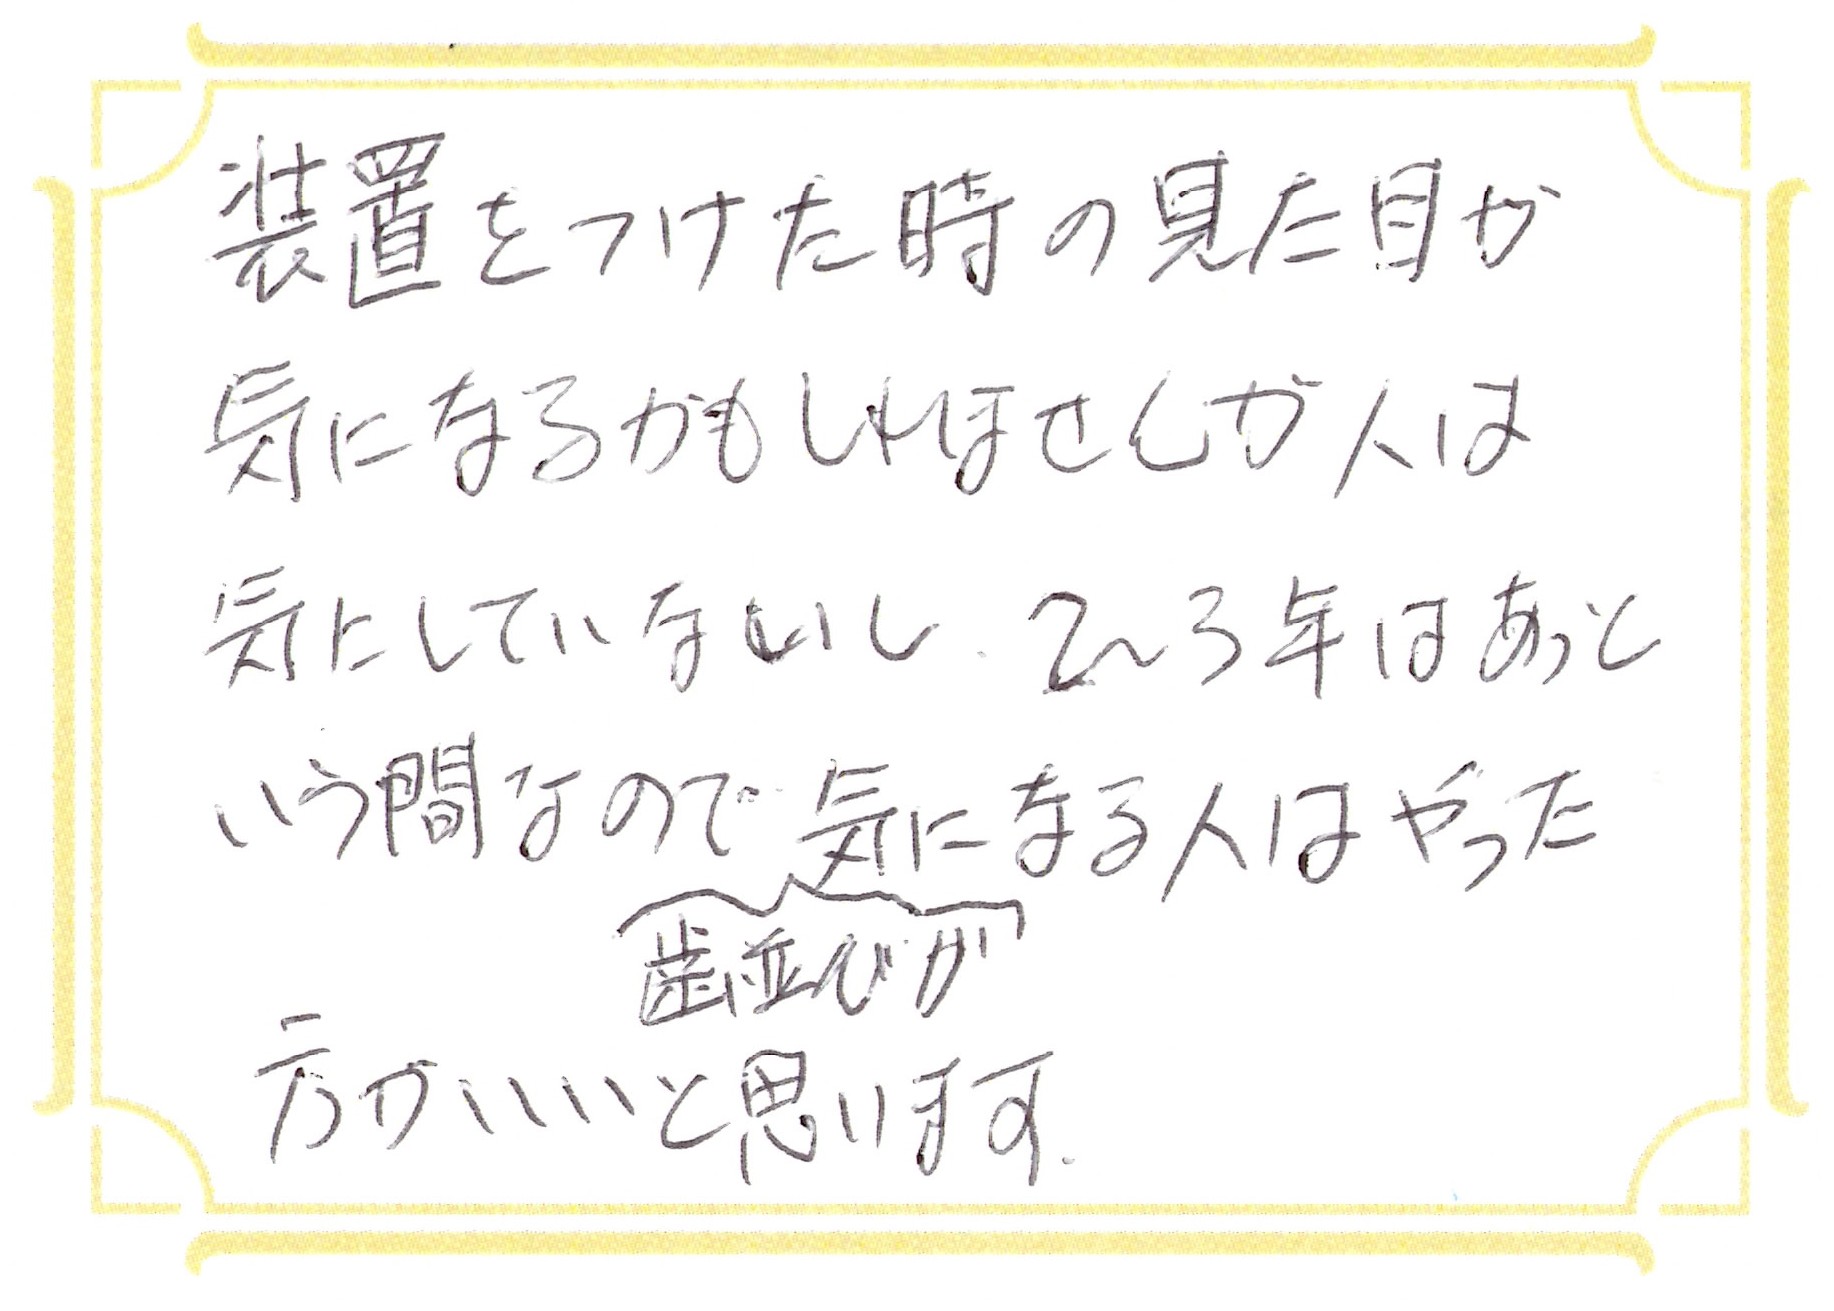 装置をつけた時の見た目が
気になるかもしれませんが人は
気にしていないし、2~3年はあっと
いう間なので気になる人はやった
歯並びが
方がいいと思います.